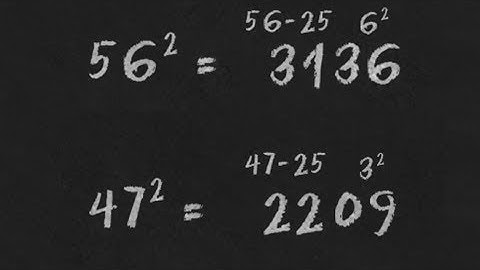 56-25 6²
56² = 3136
47-25 3²
47² = 2209